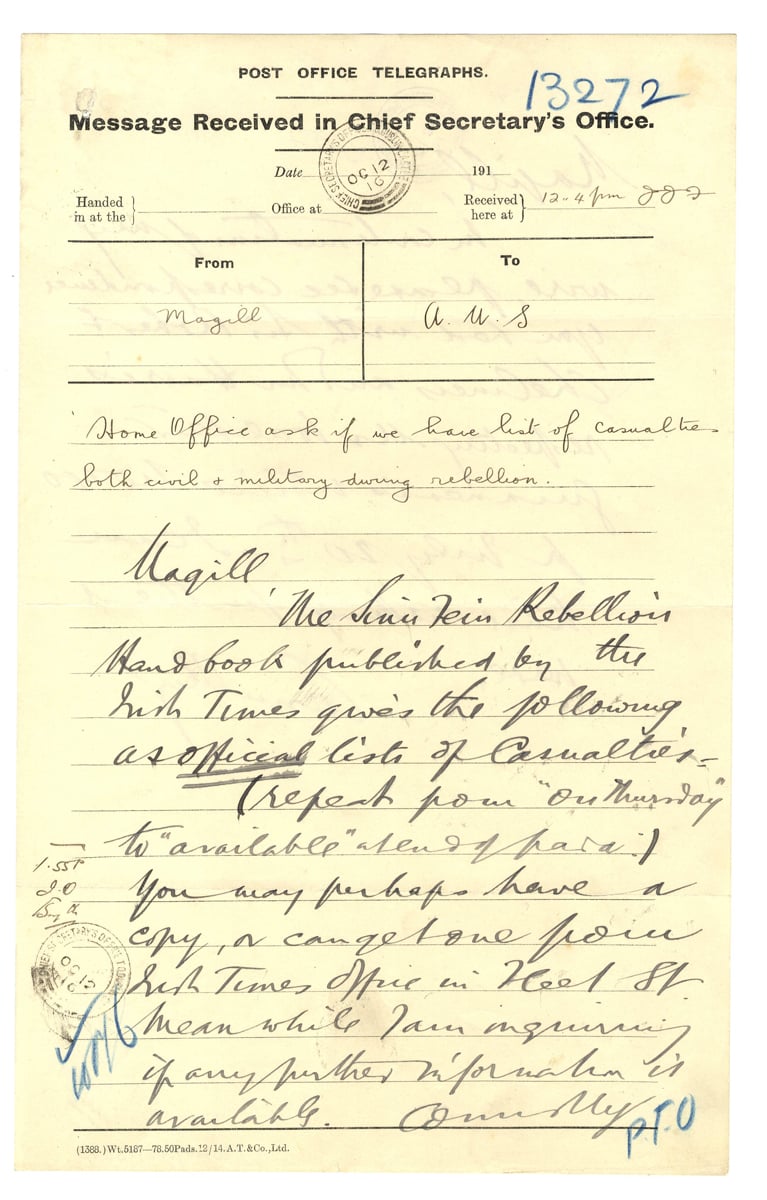 POST OFFICE TELEGRAPHS.
13272
Message Received in Chief Secretary's Office.
Date 191
OC 12
16
Handed in at the } Office at Received here at } 12-4 pm
From To
Magill A. U. S
Home Office ask if we have list of casualties
both civil & military during rebellion.
Magill,
The Sinn Fein Rebellion
Handbook published by the
Irish Times gives the following
as official lists of Casualties-
(repeat from "on Thursday"
to "available" at end of para.)
You may perhaps have a
copy, or can get one from
Irish Times Office in Fleet St.
Meanwhile I am inquiring
if any further information is
available. Connolly
1.55P
OC 12
16
P.T.O
(1388.) Wt.5187—78.50Pads.12/14.A.T.&Co.,Ltd.